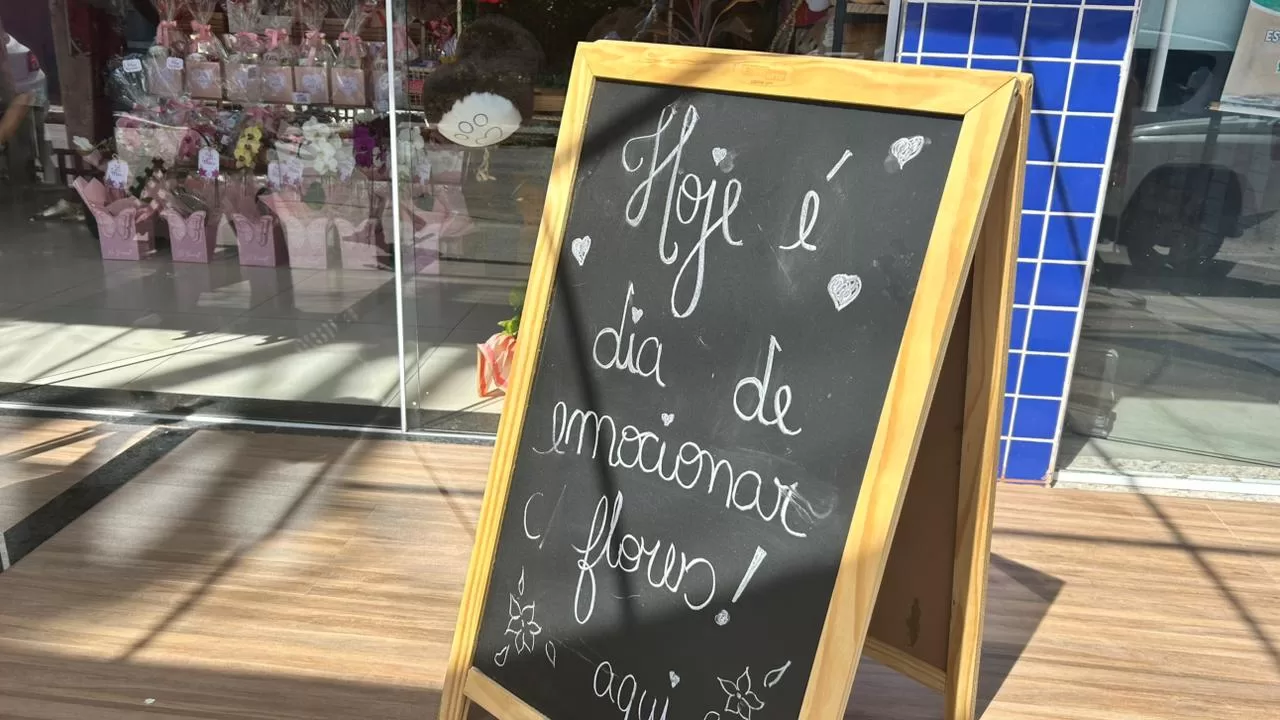 Hoje é
dia de
emocionar
c/ flores!
aqui